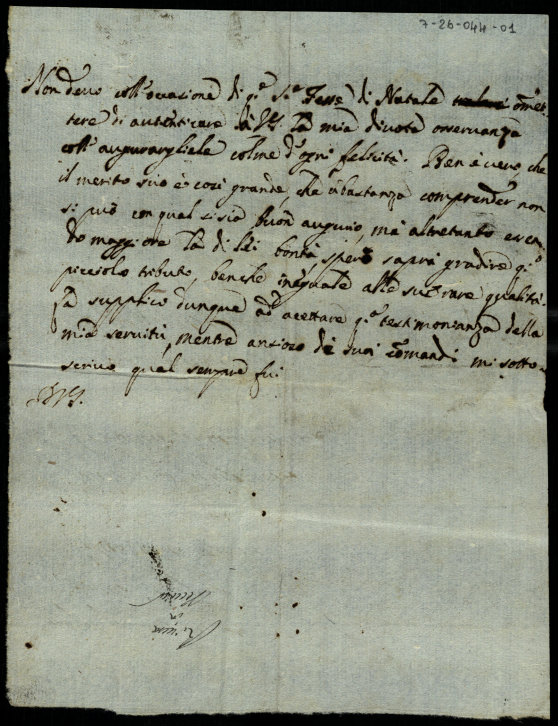 7-26-044-01
Non devo coll'occasione di q.e S.e Feste di Natale omet
tere di autenticare à VS. la mia divota osservanza
coll'augurargliele colme d'ogni felicità. Ben è vero, che
il merito suo è così grande, che abastanza comprender non
si può con qual sisia buon augurio, mà altretanto essen
do maggiore la di lei bontà, spero saprà gradire q.o
picciolo tributo, benche inequale alle sue rare qualità.
La supplico dunque ad acettare q.a testimonianza della
mia servitù, mentre ansioso de suoi comandi mi sotto-
scrivo qual sempre fui
D VS.